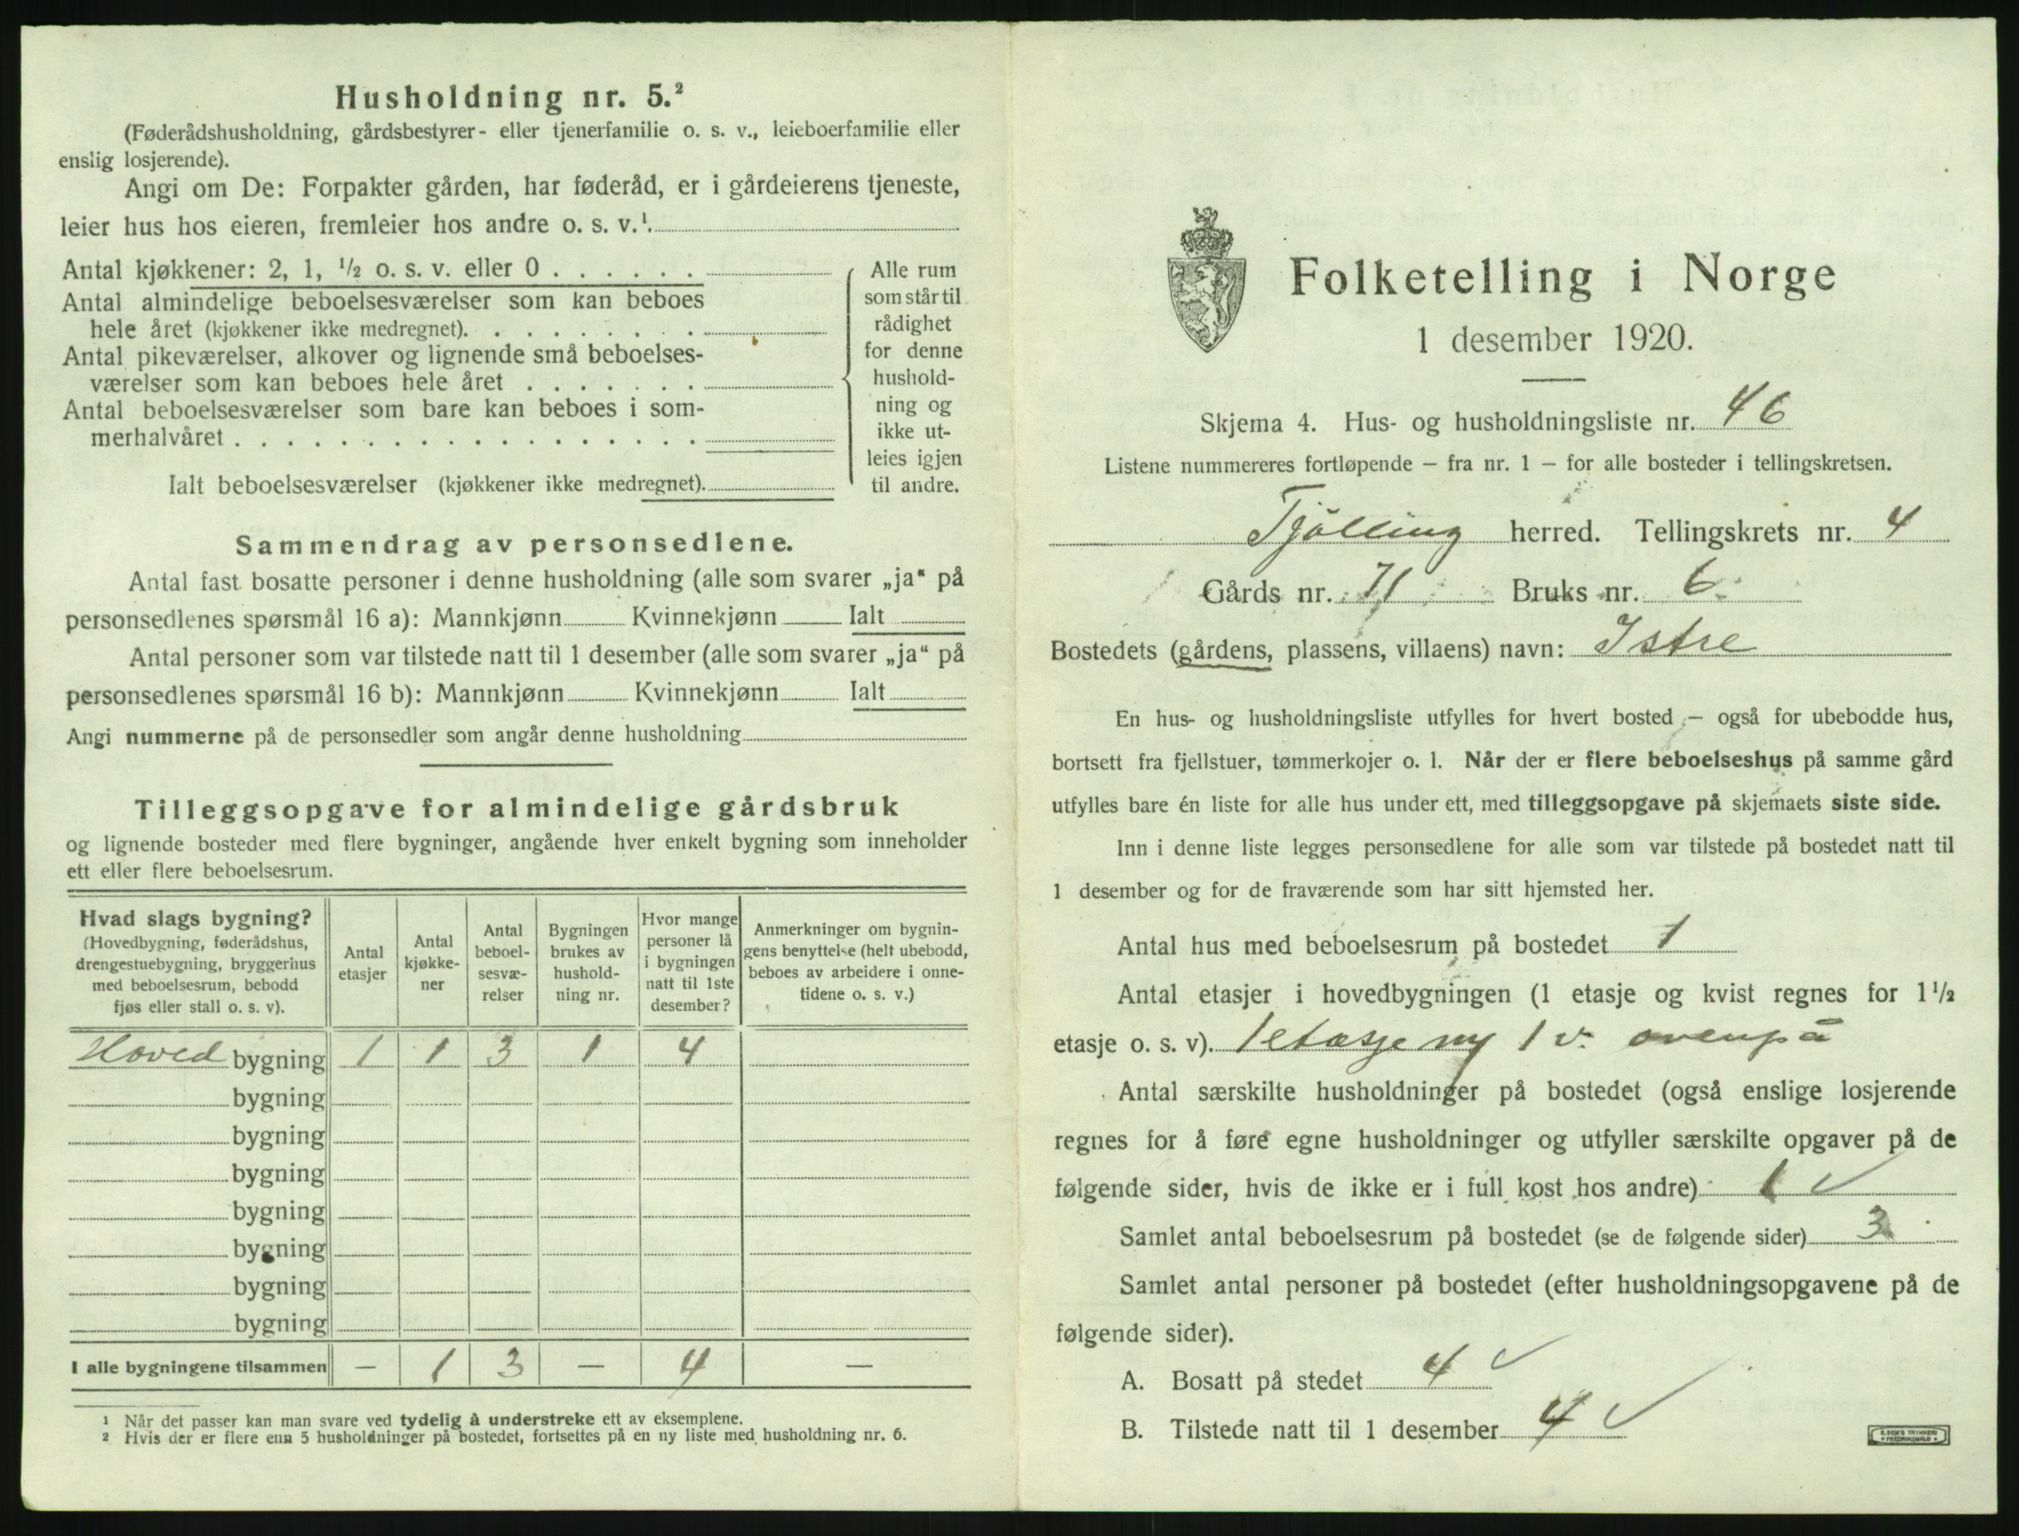 Husholdning nr. 5.²
(Føderådshusholdning, gårdsbestyrer- eller tjenerfamilie o. s. v., leieboerfamilie eller
enslig losjerende).
Angi om De: Forpakter gården, har føderåd, er i gårdeierens tjeneste,
leier hus hos eieren, fremleier hos andre o. s. v.¹
Antal kjøkkener: 2, 1, ½ o. s. v. eller 0 . . . . . .
Antal almindelige beboelsesværelser som kan beboes
hele året (kjøkkener ikke medregnet). . . . . . . . .
Antal pikeværelser, alkover og lignende små beboelses-
værelser som kan beboes hele året . . . . . . .
Antal beboelsesværelser som bare kan beboes i som-
merhalvåret . . . . . . . . . . . . . . . . . .
Ialt beboelsesværelser (kjøkkener ikke medregnet).
Alle rum
som står til
rådighet
for denne
hushold-
ning og
ikke ut-
leies igjen
til andre.
Sammendrag av personsedlene.
Antal fast bosatte personer i denne husholdning (alle som svarer „ja“ på
personsedlenes spørsmål 16 a): Mannkjønn Kvinnekjønn Ialt
Antal personer som var tilstede natt til 1 desember (alle som svarer „ja“ på
personsedlenes spørsmål 16 b): Mannkjønn Kvinnekjønn Ialt
Angi nummerne på de personsedler som angår denne husholdning
Tilleggsopgave for almindelige gårdsbruk
og lignende bosteder med flere bygninger, angående hver enkelt bygning som inneholder
ett eller flere beboelsesrum.
Hvad slags bygning?
(Hovedbygning, føderådshus,
drengestuebygning, bryggerhus
med beboelsesrum, bebodd
fjøs eller stall o. s. v).
Antal
etasjer
Antal
kjøkke-
ner
Antal
beboel-
sesvæ-
relser
Bygningen
brukes av
hushold-
ning nr.
Hvor mange
personer lå
i bygningen
natt til 1ste
desember?
Anmerkninger om bygnin-
gens benyttelse (helt ubebodd,
beboes av arbeidere i onne-
tidene o. s. v.)
Hoved bygning 1 1 3 1 4
bygning
bygning
bygning
bygning
bygning
bygning
bygning
I alle bygningene tilsammen — 1 3 — 4 —
¹ Når det passer kan man svare ved tydelig å understreke ett av eksemplene.
² Hvis der er flere enn 5 husholdninger på bostedet, fortsettes på en ny liste med husholdning nr. 6.
Folketelling i Norge
1 desember 1920.
Skjema 4. Hus- og husholdningsliste nr. 46
Listene nummereres fortløpende — fra nr. 1 — for alle bosteder i tellingskretsen.
Tjølling herred. Tellingskrets nr. 4
Gårds nr. 71 Bruks nr. 6
Bostedets (gårdens, plassens, villaens) navn: Istre
En hus- og husholdningsliste utfylles for hvert bosted — også for ubebodde hus,
bortsett fra fjellstuer, tømmerkojer o. l. Når der er flere beboelseshus på samme gård
utfylles bare én liste for alle hus under ett, med tilleggsopgave på skjemaets siste side.
Inn i denne liste legges personsedlene for alle som var tilstede på bostedet natt til
1 desember og for de fraværende som har sitt hjemsted her.
Antal hus med beboelsesrum på bostedet 1
Antal etasjer i hovedbygningen (1 etasje og kvist regnes for 1½
etasje o. s. v). 1 etasje og 1 v. ovenpå
Antal særskilte husholdninger på bostedet (også enslige losjerende
regnes for å føre egne husholdninger og utfyller særskilte opgaver på de
følgende sider, hvis de ikke er i full kost hos andre) 1 ✓
Samlet antal beboelsesrum på bostedet (se de følgende sider) 3
Samlet antal personer på bostedet (efter husholdningsopgavene på de
følgende sider).
A. Bosatt på stedet 4 ✓
B. Tilstede natt til 1 desember 4 ✓